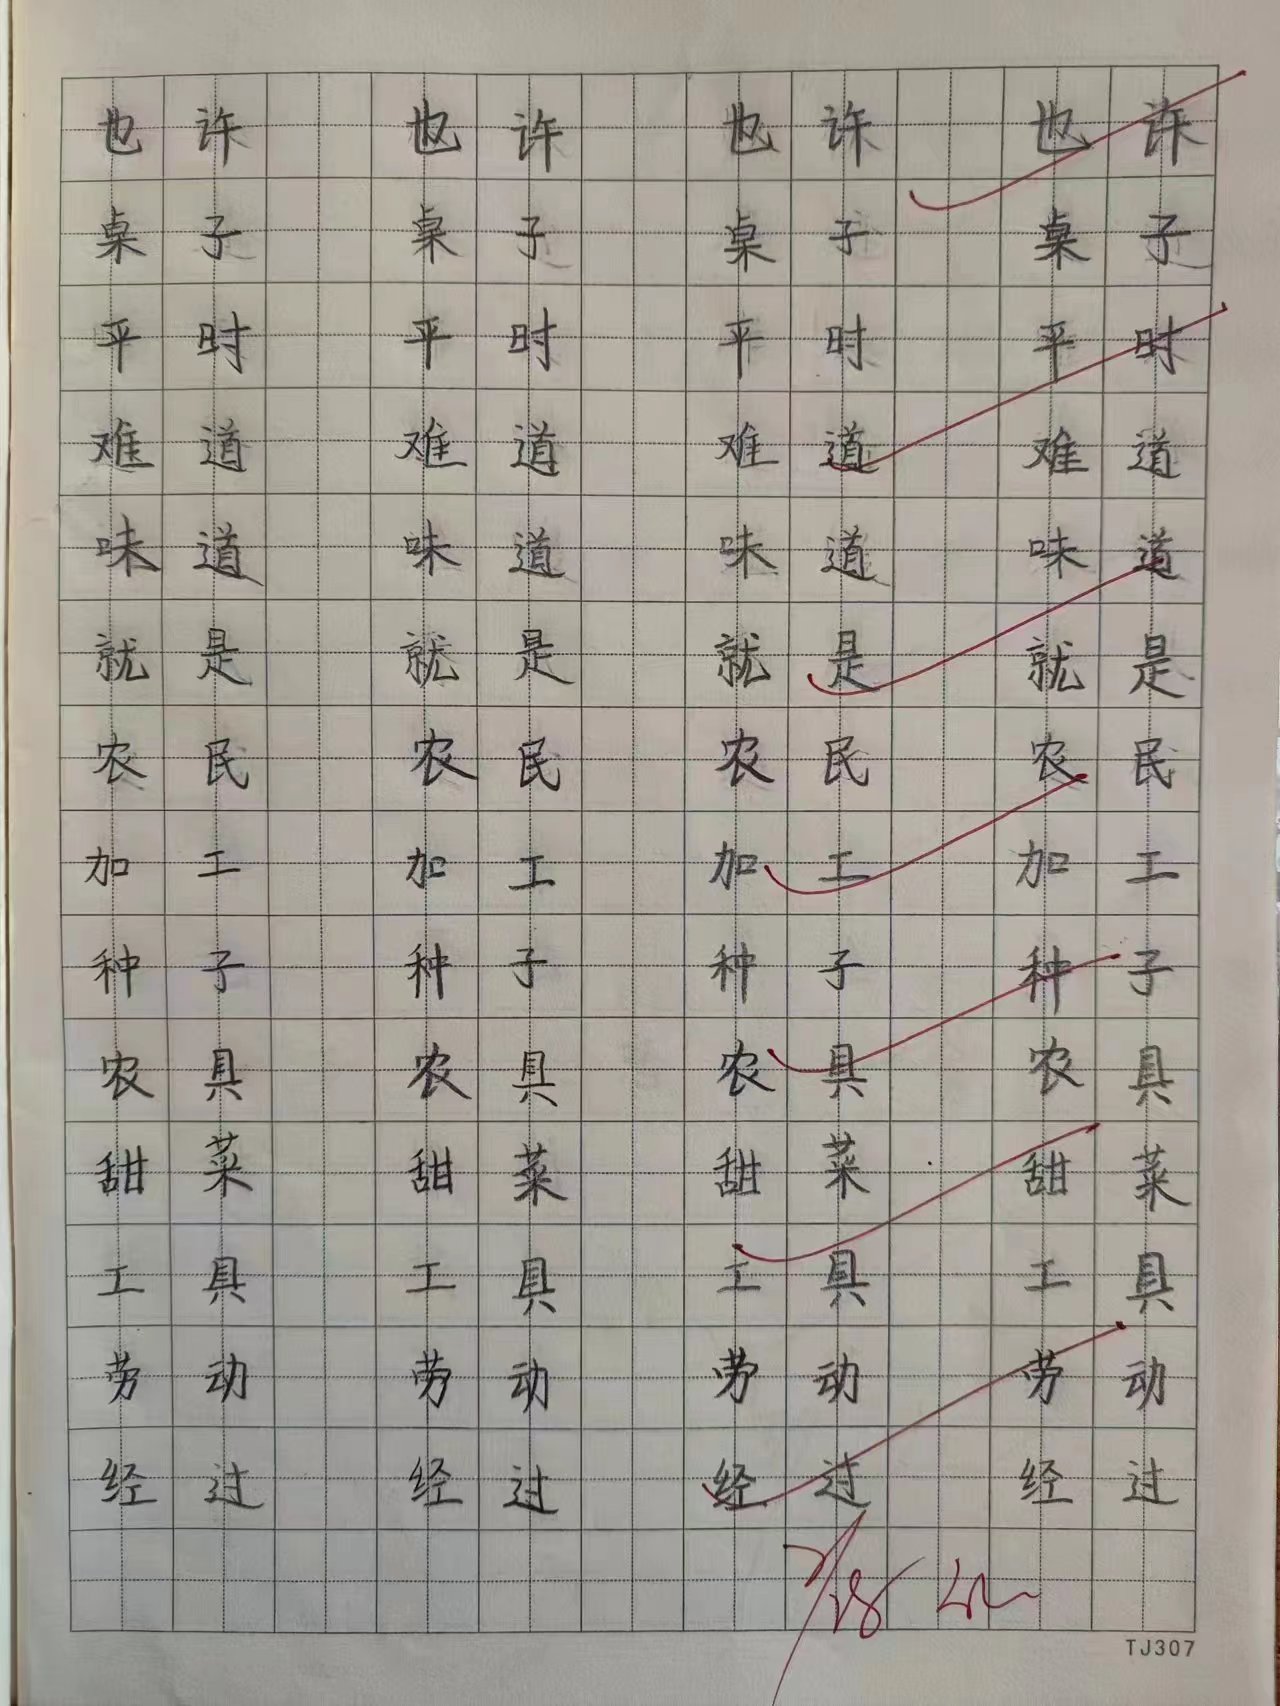 也许 也许 也许 也许
桌子 桌子 桌子 桌子
平时 平时 平时 平时
难道 难道 难道 难道
味道 味道 味道 味道
就是 就是 就是 就是
农民 农民 农民 农民
加工 加工 加工 加工
种子 种子 种子 种子
农具 农具 农具 农具
甜菜 甜菜 甜菜 甜菜
工具 工具 工具 工具
劳动 劳动 劳动 劳动
经过 经过 经过 经过
TJ307